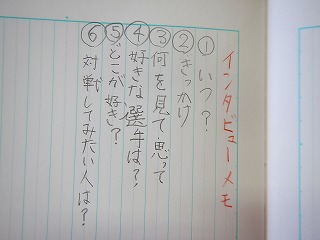 インタビューメモ
①いつ？
②きっかけ
③何を見て思って
④好きな選手は？
⑤どこが好き？
⑥対戦してみたい人は？